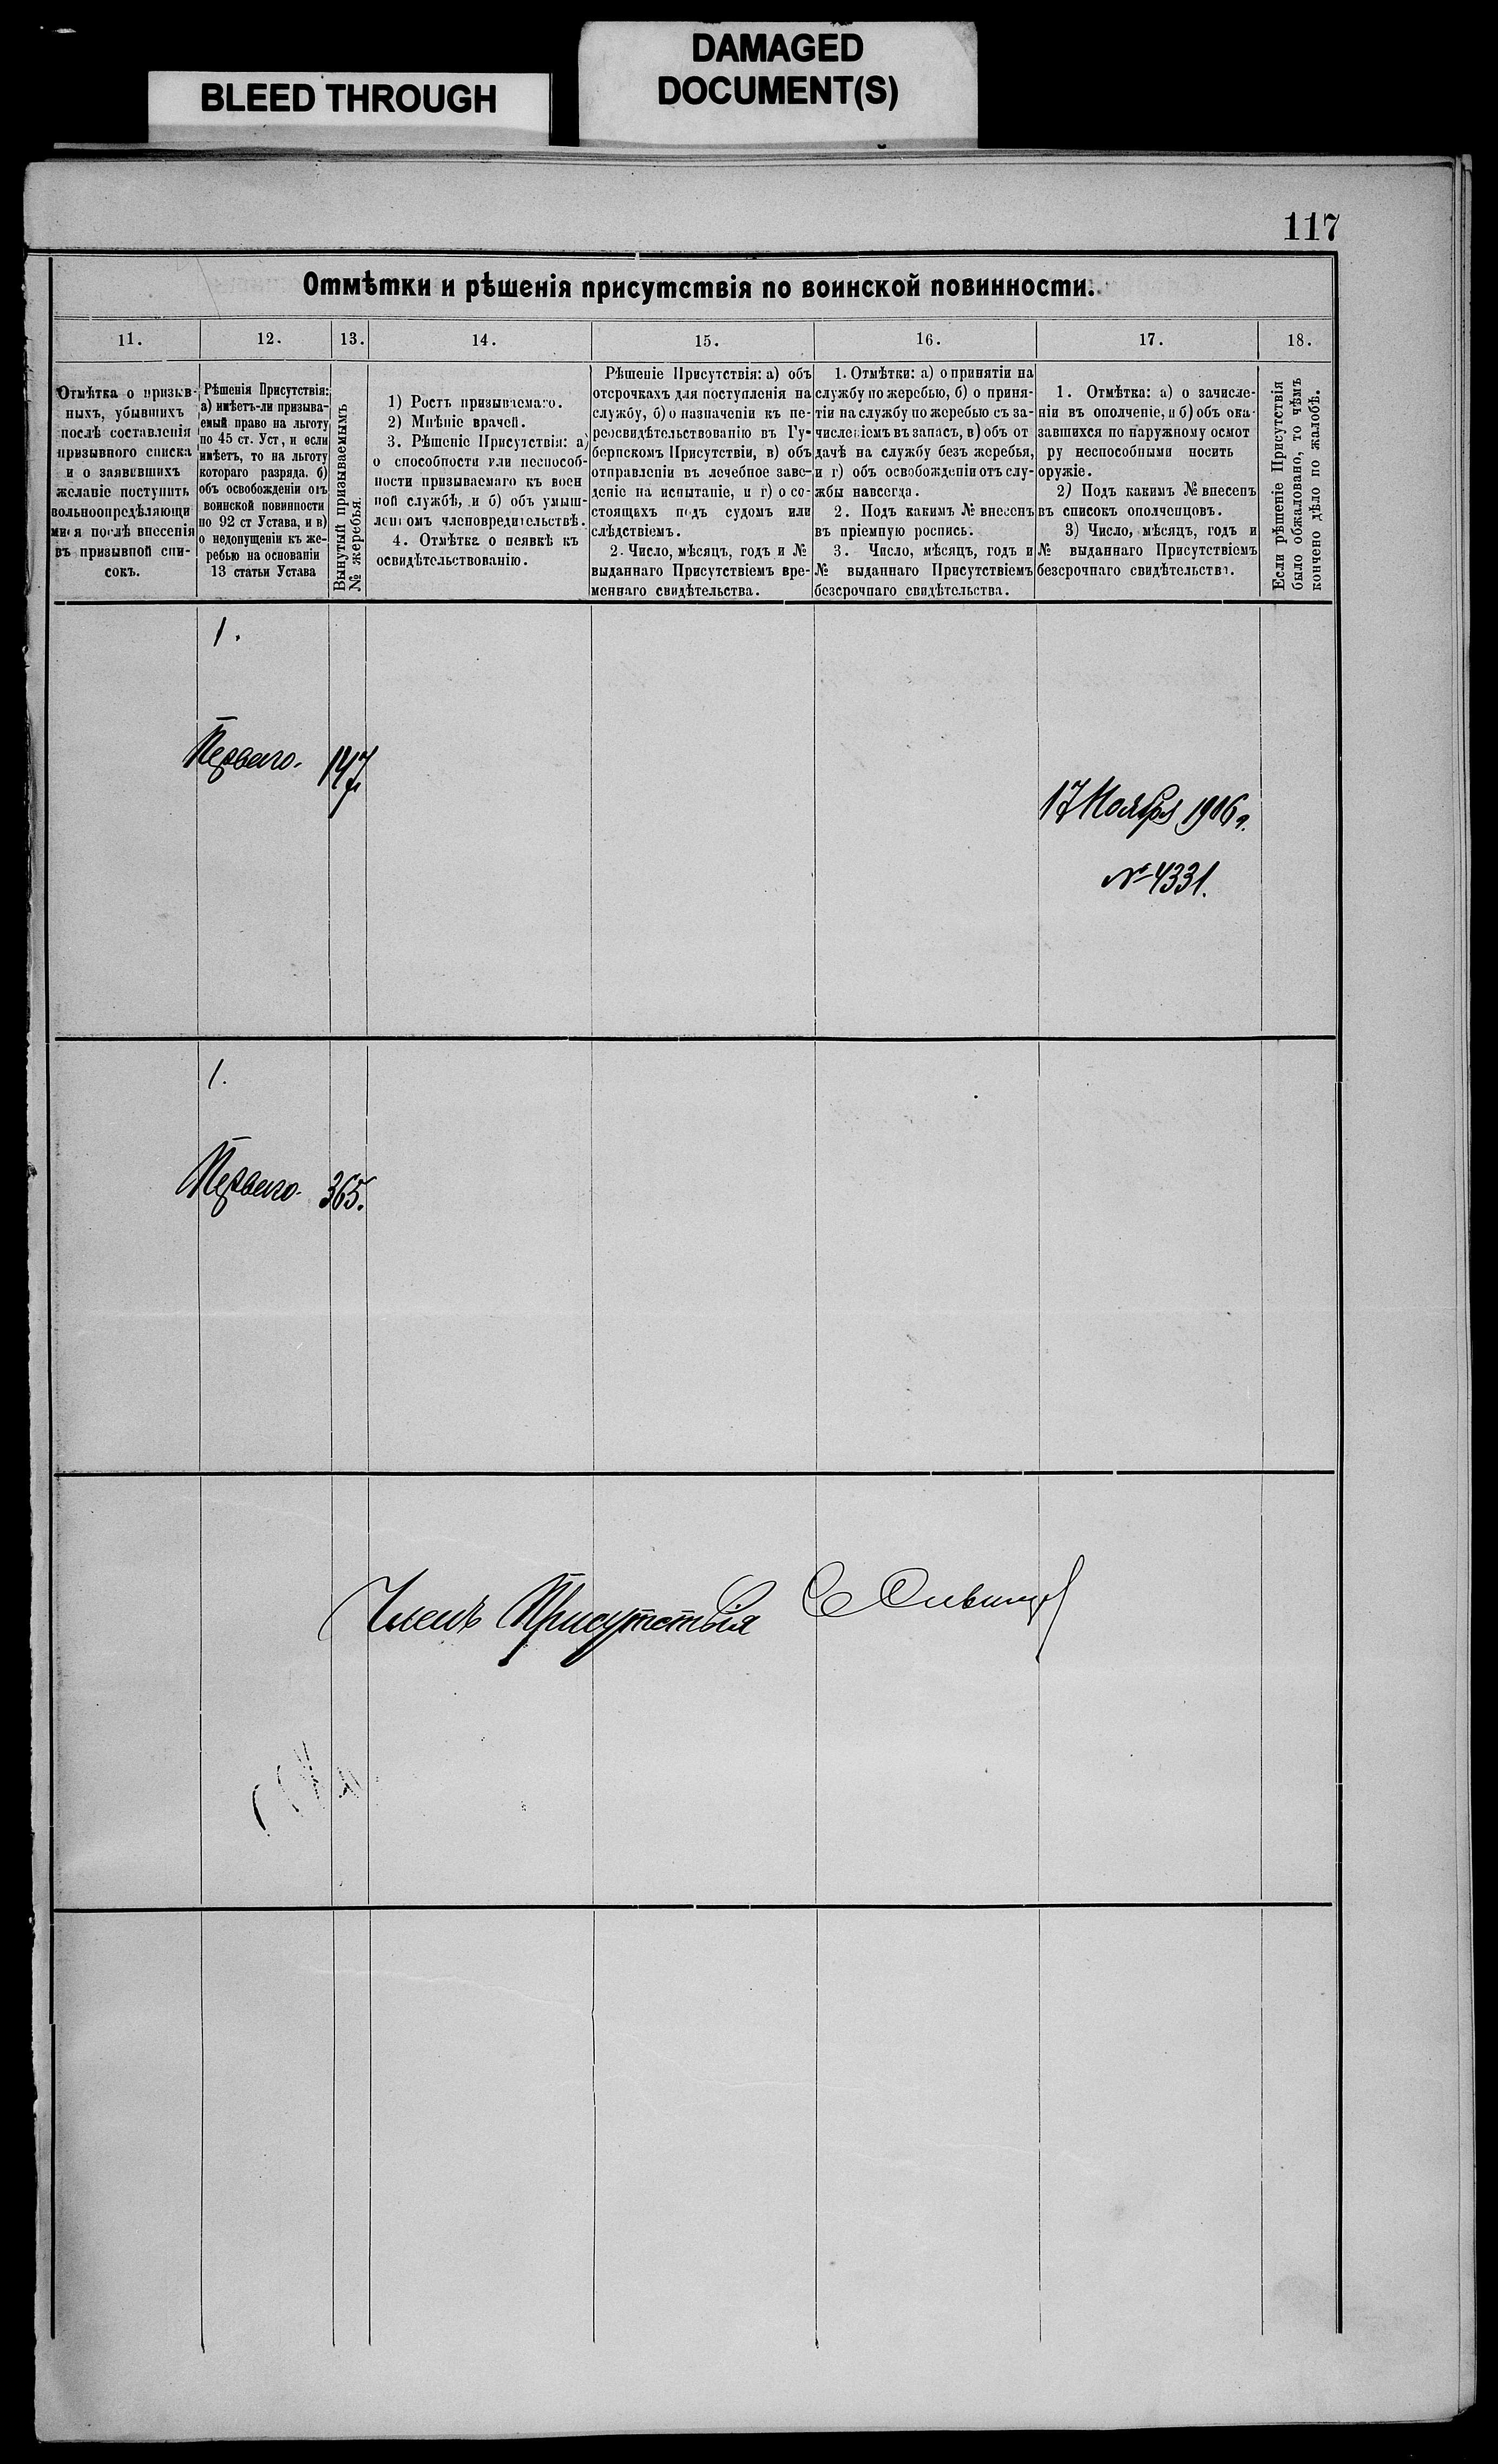 BLEED THROUGH
DAMAGED
DOCUMENT(S)
117
Отмѣтки и рѣшенія присутствія по воинской повинности.
11.
12.
13.
14.
15.
16.
17.
18.
Отмѣтка о призыв-
ныхъ, убывшихъ
послѣ составленія
призывного списка
и о заявившихъ
желаніе поступить
вольноопредѣляющи
мися послѣ внесенія
въ призывной спи-
сокъ.
Рѣшенія Присутствія:
а) имѣетъ-ли призыва-
емый право на льготу
по 45 ст. Уст, и если
имѣетъ, то на льготу
котораго разряда. б)
объ освобожденіи отъ
воинской повинности
по 92 ст Устава, и в)
о недопущеніи къ же-
ребью на основаніи
13 статьи Устава
Вынутый призываемымъ
№ жеребья.
1) Ростъ призываемаго.
2) Мнѣніе врачей.
3. Рѣшеніе Присутствія: а)
о способности или неспособ-
ности призываемаго къ воен
ной службѣ, и б) объ умыш-
ленномъ членовредительствѣ.
4. Отмѣтка о неявкѣ къ
освидѣтельствованію.
Рѣшеніе Присутствія: а) объ
отсрочкахъ для поступленія на
службу, б) о назначеніи къ пе-
реосвидѣтельствованію въ Гу-
бернскомъ Присутствіи, в) объ
отправленіи въ лечебное заве-
деніе на испытаніе, и г) о со-
стоящихъ подъ судомъ или
слѣдствіемъ.
2. Число, мѣсяцъ, годъ и №
выданнаго Присутствіемъ вре-
меннаго свидѣтельства.
1. Отмѣтки: а) о принятіи на
службу по жеребью, б) о приня-
тіи на службу по жеребью съ за-
численіемъ въ запасъ, в) объ от
дачѣ на службу безъ жеребья,
и г) объ освобожденіи отъ слу-
жбы навсегда.
2. Подъ какимъ № внесенъ
въ пріемную роспись.
3. Число, мѣсяцъ, годъ и
№ выданнаго Присутствіемъ
безсрочнаго свидѣтельства.
1. Отмѣтка: а) о зачисле-
ніи въ ополченіе, и б) объ ока-
завшихся по наружному осмот
ру неспособными носить
оружіе.
2) Подъ какимъ № внесенъ
въ списокъ ополченцовъ.
3) Число, мѣсяцъ, годъ и
№ выданнаго Присутствіемъ
безсрочнаго свидѣтельства.
Если рѣшеніе Присутствія
было обжаловано, то чѣмъ
кончено дѣло по жалобѣ.
1.
Перваго. 147
17 Ноября 1906 г.
№ 4331.
1.
Перваго. 365.
Членъ Присутствія